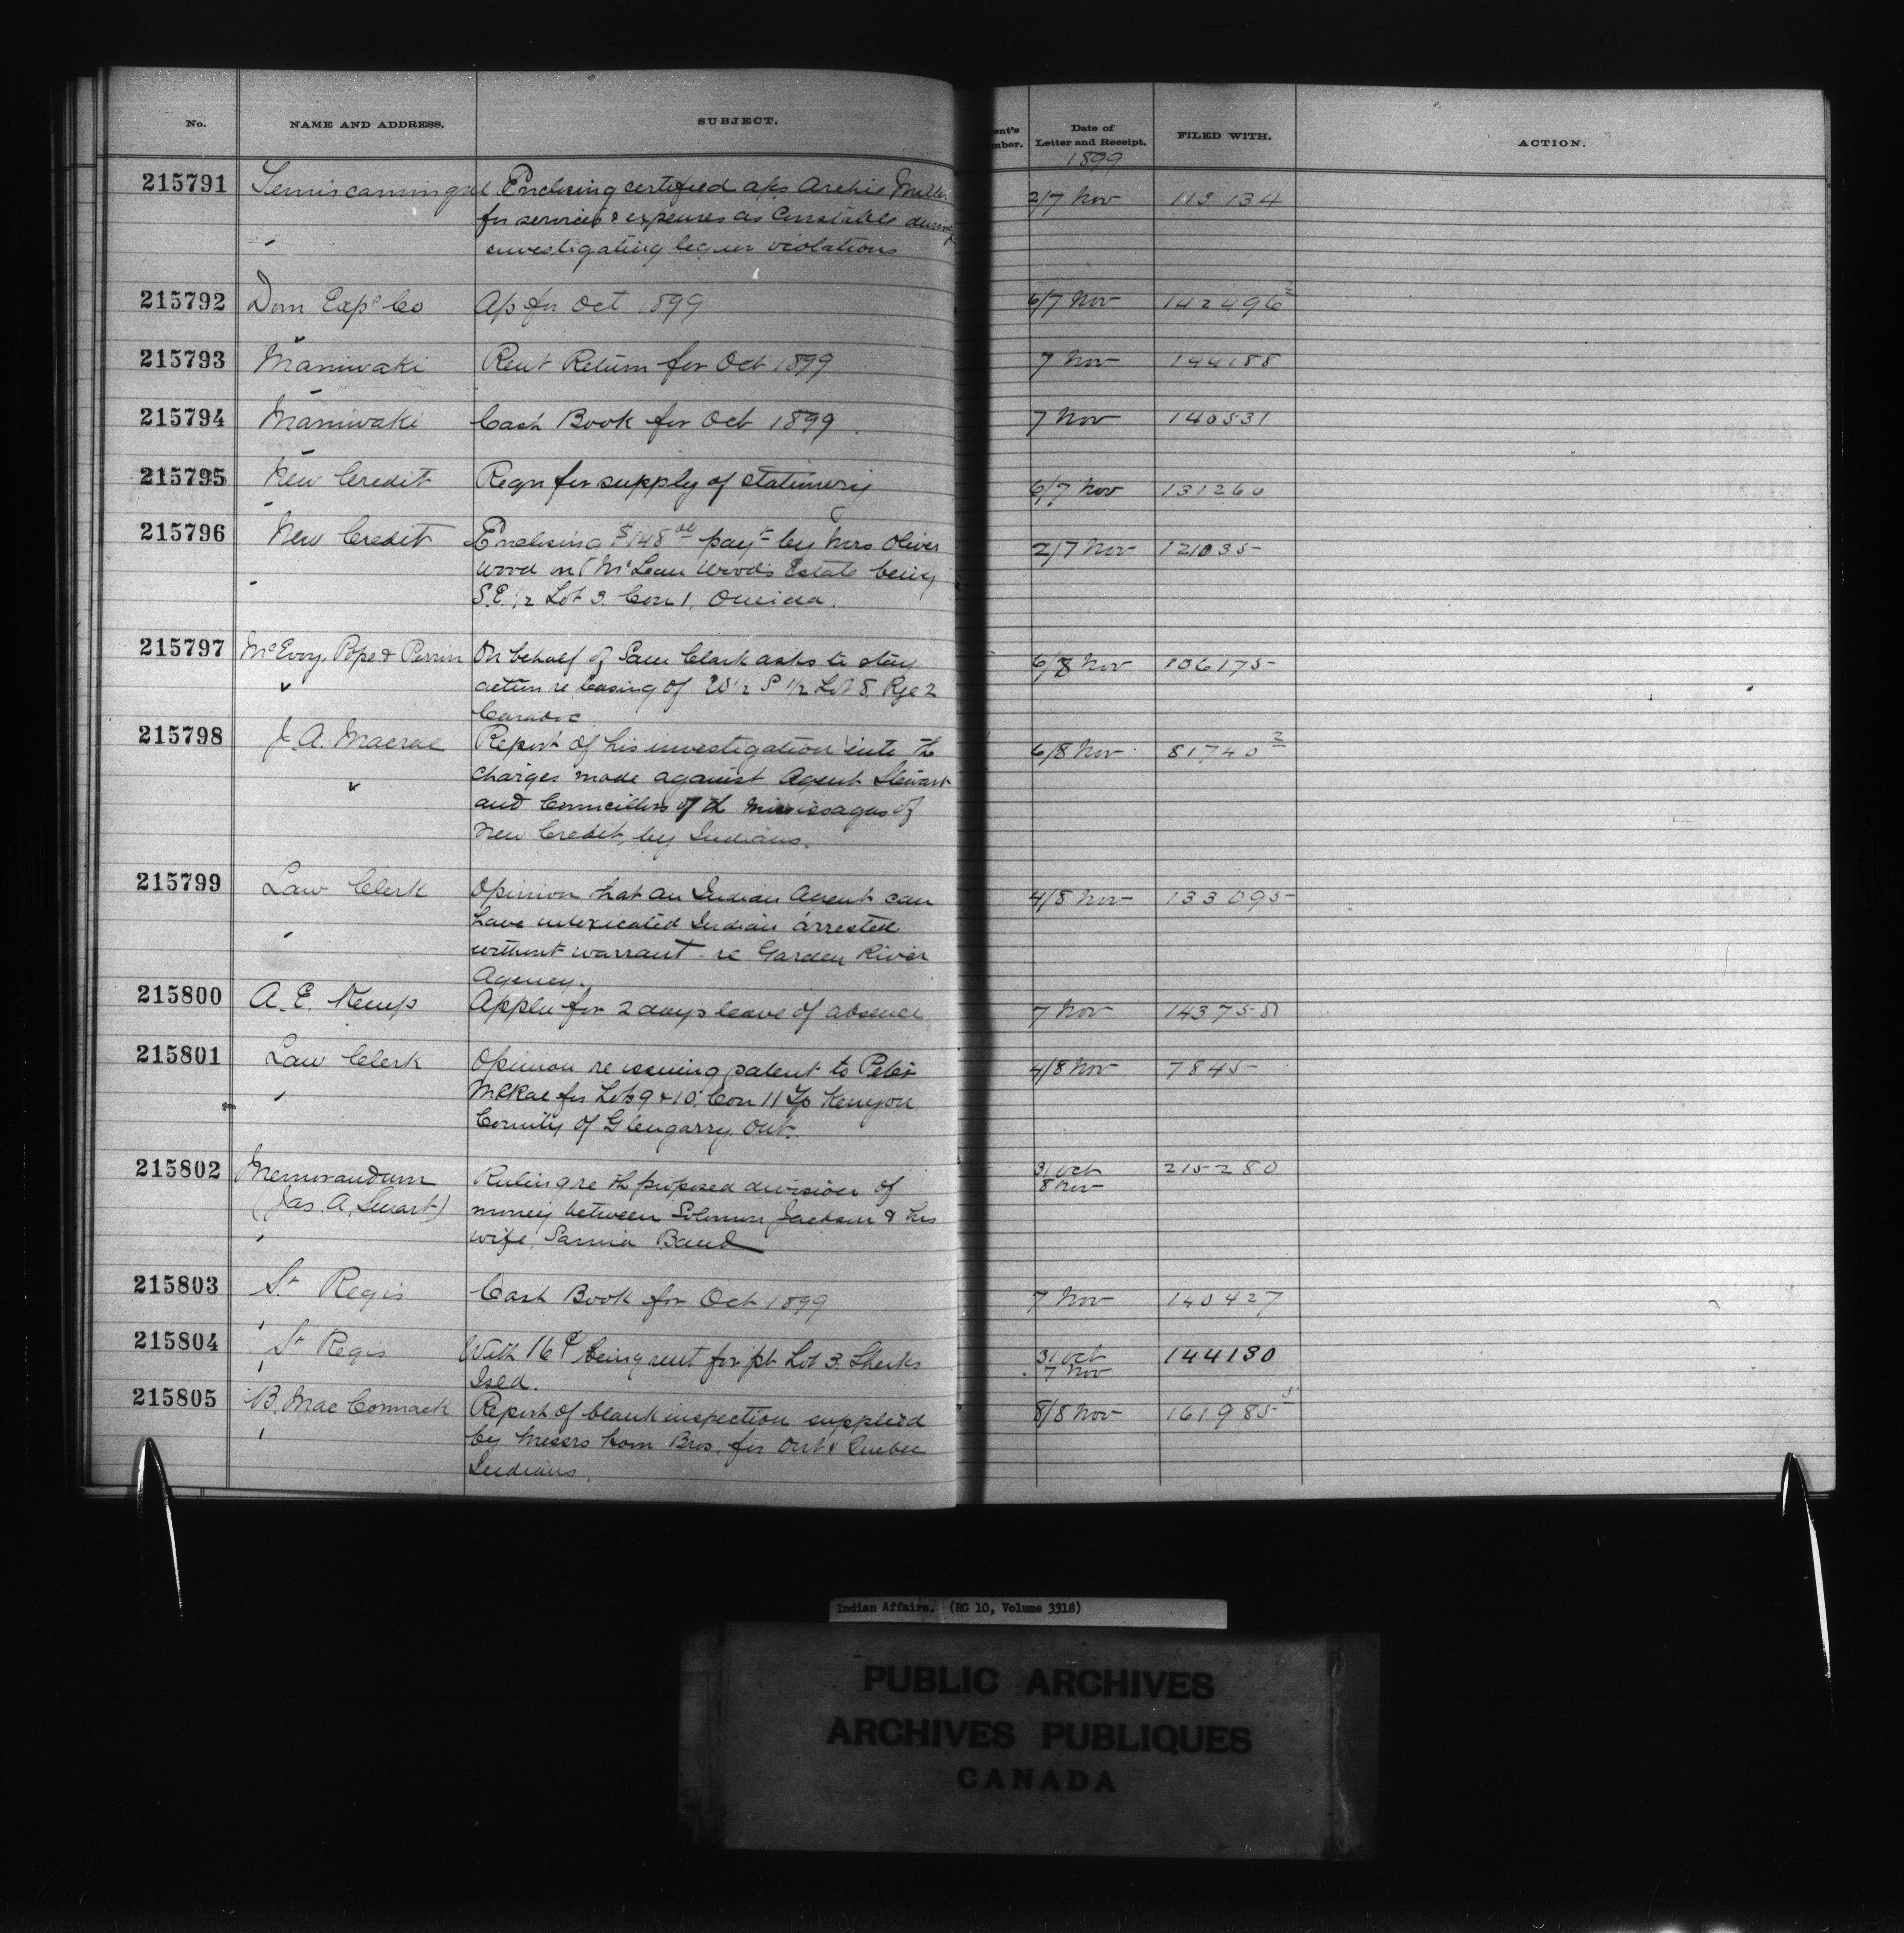 No. NAME AND ADDRESS. SUBJECT. ent's mber. Date of Letter and Receipt. FILED WITH. ACTION.
1899
215791 Temiscamingue Enclosing certified a/cs Archie Miller 2/7 Nov 113134
for services & expenses as Constable during
investigating liquor violations
215792 Dom Exps Co A/c for Oct 1899 6/7 Nov 142496 2
215793 Maniwaki Rent Return for Oct 1899 7 Nov 144188
215794 Maniwaki Cash Book for Oct 1899 7 Nov 140531
215795 New Credit Reqn for supply of stationery 6/7 Nov 131260
215796 New Credit Enclosing $148 payt by Mrs Oliver 2/7 Nov 121035
Wood on McLean Wood's Estate being
S.E. 1/2 Lot 3. Con 1. Oneida.
215797 McEvoy, Pope & Perrin On behalf of Sam Clark asks to stay 6/8 Nov 106175
action re leasing of W 1/2 S 1/2 Lot 8. Rge 2
Caradoc
215798 J. A. Macrae Report of his investigation into th 6/8 Nov 81740 2
charges made against Agent Stewart
and Councillors of th Mississagas of
New Credit, by Indians.
215799 Law Clerk Opinion that an Indian Agent can 4/8 Nov 133095
have intoxicated Indian arrested
without warrant - re Garden River
Agency.
215800 A. E. Kemp Appln for 2 days leave of absence 7 Nov 143758
215801 Law Clerk Opinion re issuing patent to Peter 4/8 Nov 7845
McRae for Lots 9 & 10. Con 11 Tp Kenyon
County of Glengarry. Ont.
215802 Memorandum Ruling re th proposed division of 31 Oct 215280
8 Nov
(Jas. A. Smart) money between Solomon Jackson & his
wife, Sarnia Band
215803 St Regis Cash Book for Oct 1899 7 Nov 140427
215804 St Regis With 16¢ being rent for pt Lot 3. Sheeks 31 Oct 144130
7 Nov
Isld.
215805 B. Mac Cormack Report of blank inspection supplied 8/8 Nov 161985
by Messrs Bros. for Ont & Quebec
Indians.
Indian Affairs. (RG 10, Volume 3318)
PUBLIC ARCHIVES
ARCHIVES PUBLIQUES
CANADA